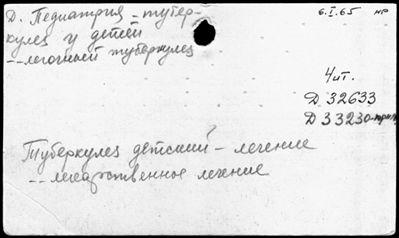 Д. Педиатрия – тубер-
кулез у детей
– – легочный туберкулез
6.I.65 нр
Чит.
Д 32633
Д 33230
Туберкулез детский – лечение
– – лекарственное лечение